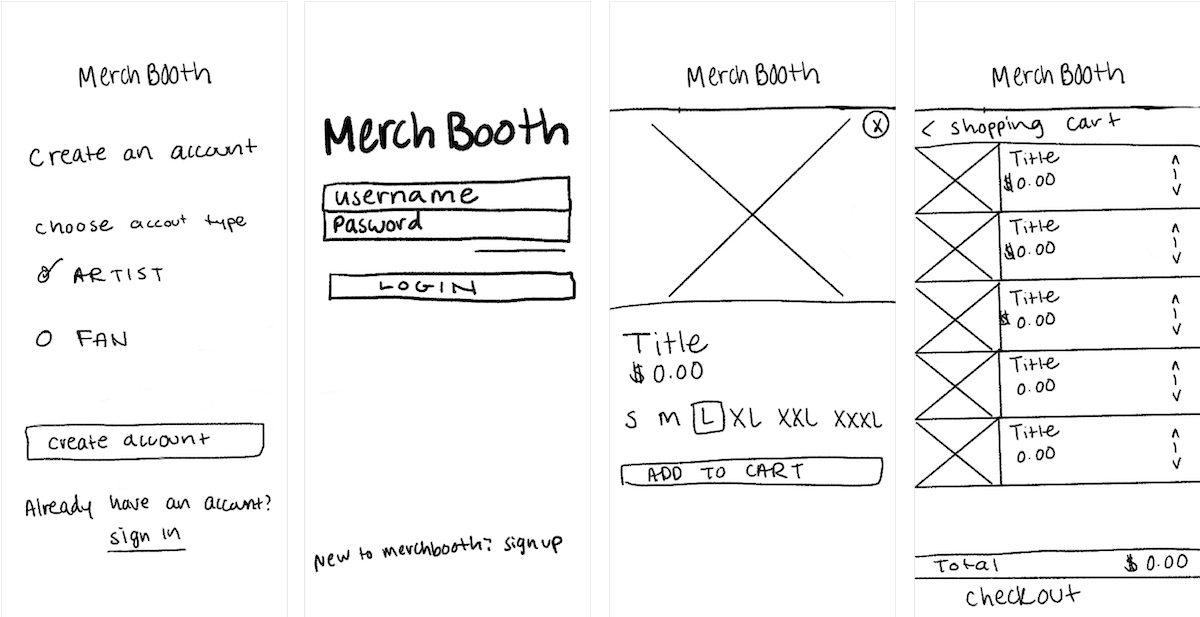 Merch Booth
Create an account
choose accout type
ARTIST
FAN
create account
Already have an account?
sign in
Merch Booth
username
Pasword
LOGIN
New to merchbooth? sign up
Merch Booth
X
Title
$ 0.00
S M L XL XXL XXXL
ADD TO CART
Merch Booth
< shopping cart
Title
$0.00
1
Title
$0.00
1
Title
$ 0.00
1
Title
0.00
1
Title
0.00
1
Total $ 0.00
checkout